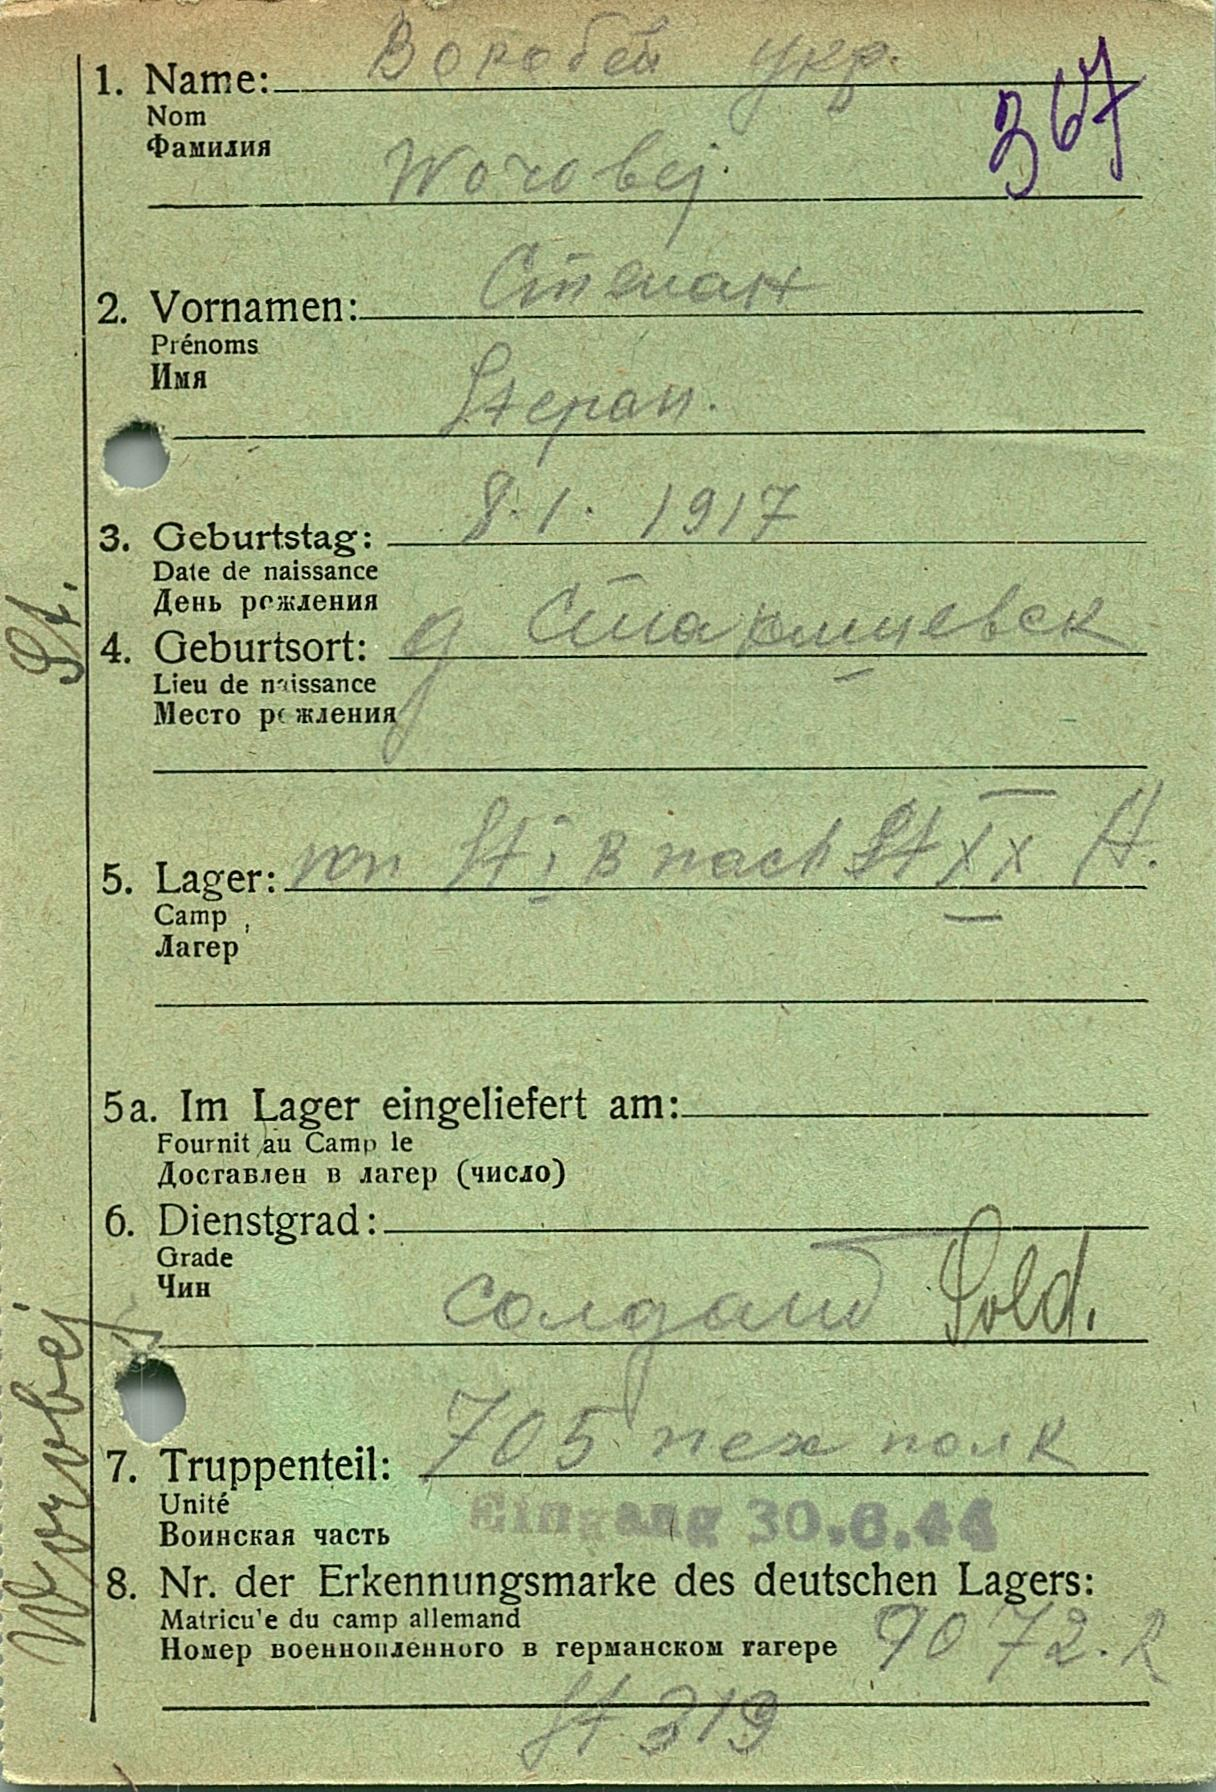 Воробей укр.
1. Name:
Nom
Фамилия
367
Worobej.
Степан
2. Vornamen:
Prénoms
Имя
Stepan.
8.1. 1917
3. Geburtstag:
Date de naissance
День рождения
д
4. Geburtsort:
Lieu de naissance
Место рождения
St.
5. Lager: von St I B nach St XX A.
Camp
Лагер
5a. Im Lager eingeliefert am:
Fournit au Camp le
Доставлен в лагер (число)
6. Dienstgrad:
Grade
Чин
солдат Sold.
7. Truppenteil: 705 пех полк
Unité
Воинская часть
Eingang 30.6.44
8. Nr. der Erkennungsmarke des deutschen Lagers:
Matricu'e du camp allemand
Номер военнопленного в германском гагере 9072.R
St 319
Worobej